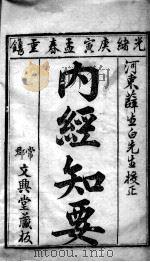 光緒庚寅孟春重鐫
河東薛生白先生挍正
內經知要
常郡文興堂藏板